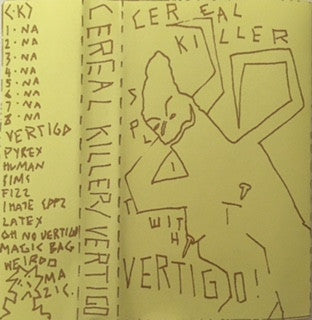 1·NA
2·NA
3·NA
4·NA
5·NA
6·NA
7·NA
8·NA
VERTIGO
PYREX
HUMAN
SIMS
FIZZ
I HATE
LATEX
OH NO VERTIGO
MAGIC BAG
WEIRDO
MA
ZIC.
CEREAL KILLER/VERTIGO
CEREAL
KILLER
SPLIT
WITH
VERTIGO!